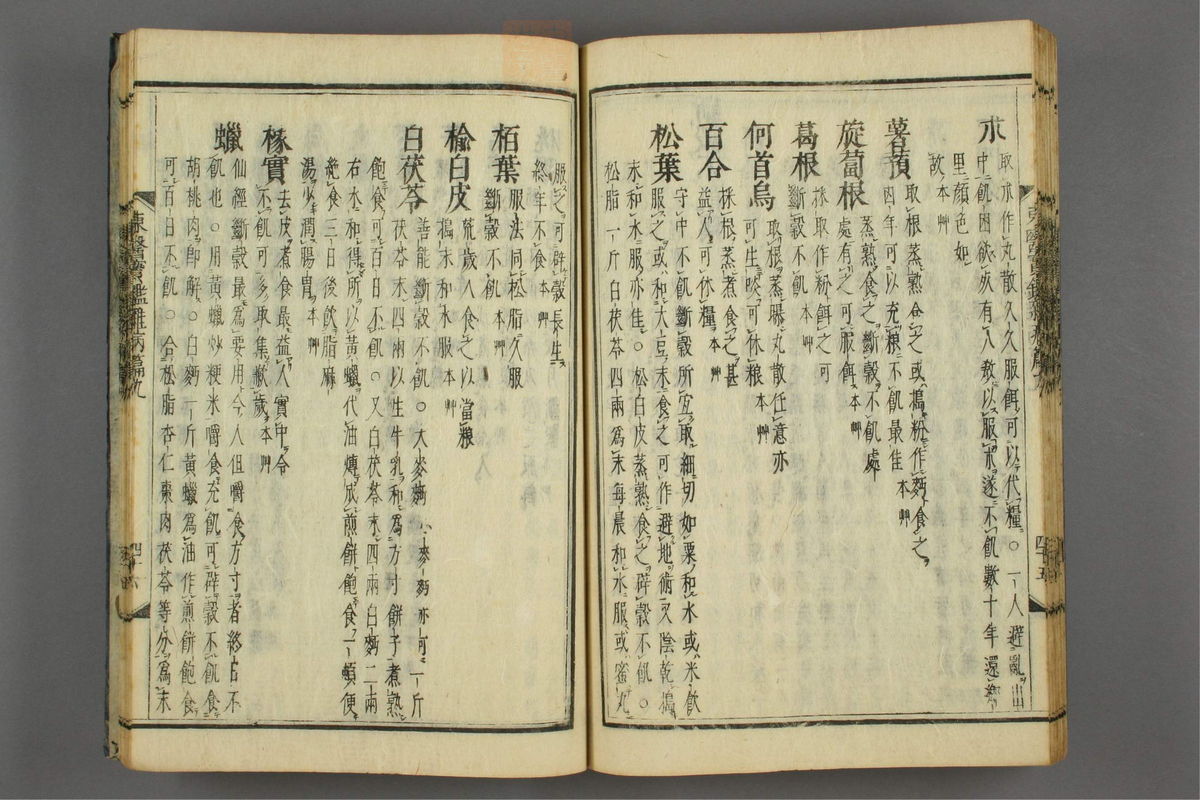 朮 取朮作丸散久久服餌可以代糧○一人避亂山
中飢困欲死有人教以服朮遂不飢數十年還鄉
里顔色如
故本艸
薯蕷 取根蒸熟食之或搗粉作麪食之
四年可以充糧不飢最佳本艸
旋葍根 蒸熟食之斷穀不飢處
處有之可服餌本艸
葛根 採取作粉餌之可
斷穀不飢本艸
何首烏 取根蒸曝丸散任意亦
可生啖可休粮本艸
百合 採根蒸煮食之甚
益人可休糧本艸
松葉 守中不飢斷穀所宜取細切如粟和水或米飮
服之或和大豆末食之可作避地術又陰乾搗
末和水服亦佳○松白皮蒸熟食之辟穀不飢○
松脂一斤白茯苓四兩爲末每晨和水服或蜜丸
服之可辟穀長生
終年不食本艸
栢葉 服法同松脂久服
斷穀不飢本艸
楡白皮 荒歲人食之以當粮
搗末和水服本艸
白茯苓 善能斷穀不飢○大麥麪
茯苓末四兩以生牛乳和爲方寸餠子煮熟
飽食可百日不飢○又白茯苓末四兩白麪二兩
右水和得所以黃蠟代油煿成煎餠飽食一頓便
絶食三日後飮脂麻
湯少潤腸胃本艸
橡實 去皮煮食最益人實中令
不飢可多取集歉歲本艸
蠟 仙經斷穀最爲要用今人但嚼食方寸者終日不
飢也○用黃蠟炒粳米嚼食充飢可辟穀不飢食
胡桃肉卽解○白麪一斤黃蠟爲油作煎餠飽食
可百日不飢○合松脂杏仁棗肉茯苓等分爲末
東醫寶鑑雜病篇九
四十五
東醫寶鑑雜病篇九
四十六